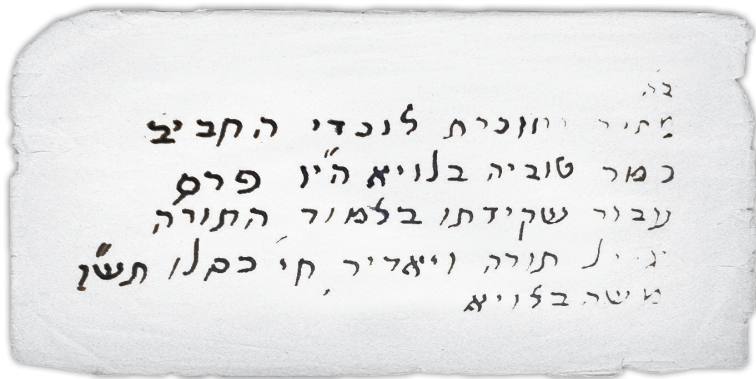 ב"ה
ומזכרת לנכדי החביב
כמר טוביה בלויא הי"ו פרס
עבור שקידתו בלמוד התורה
יגדיל תורה ויאדיר, חי' כסלו תש"ו
משה בלויא